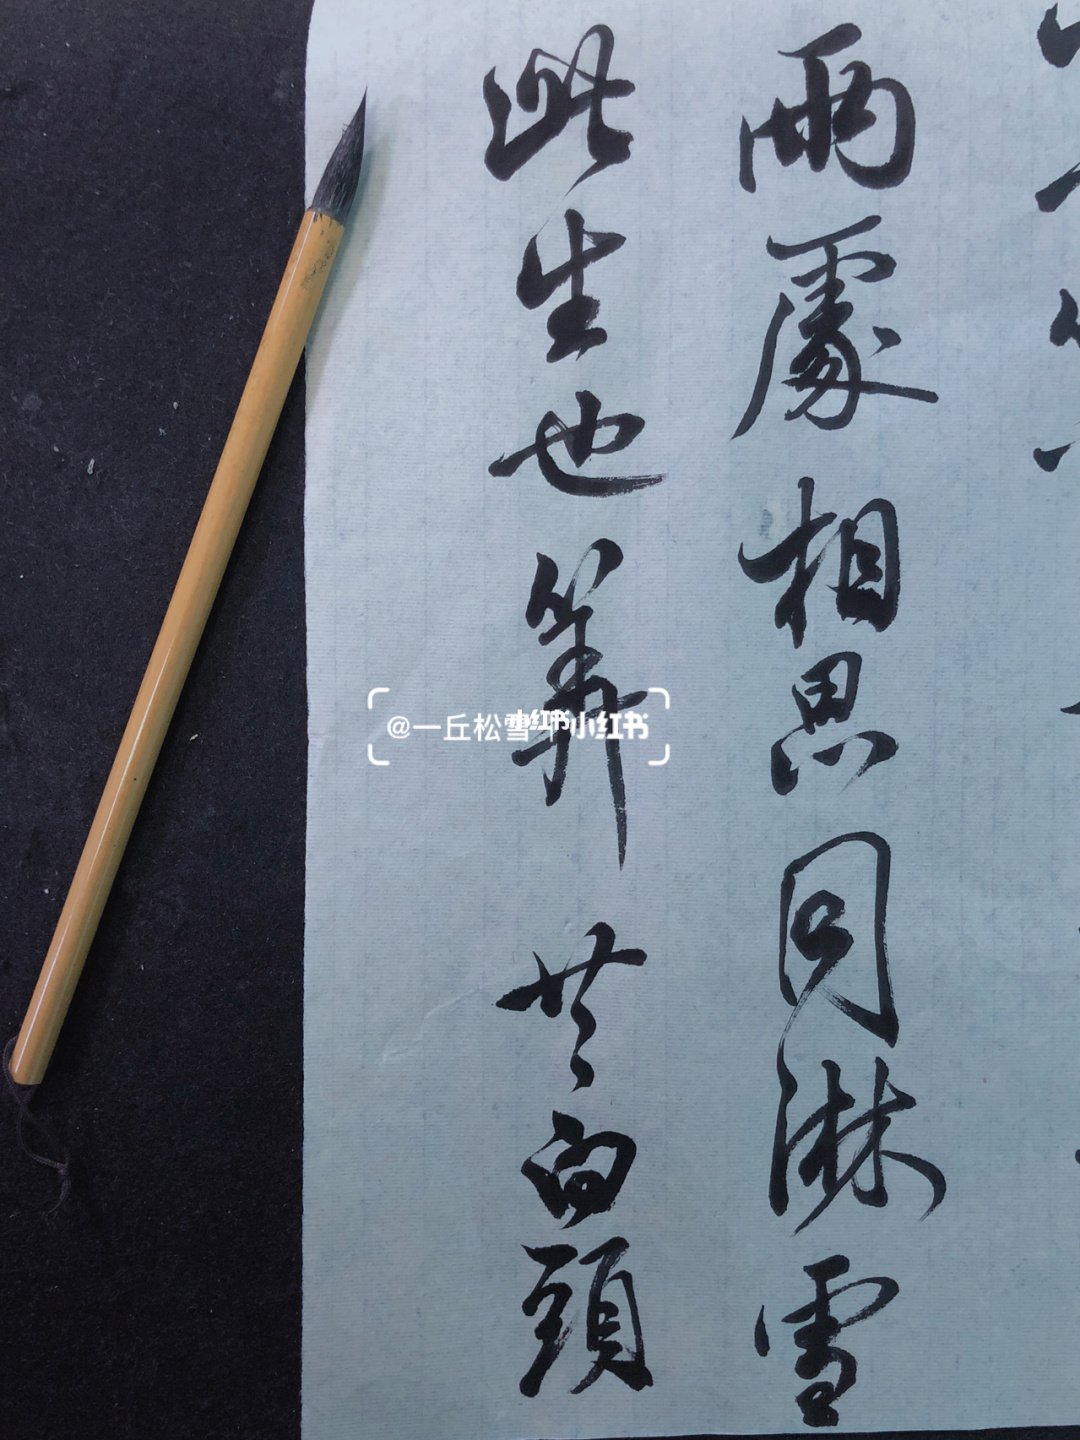 兩處相思同淋雪
此生也算共白頭
@一丘松雪
小红书
小红书